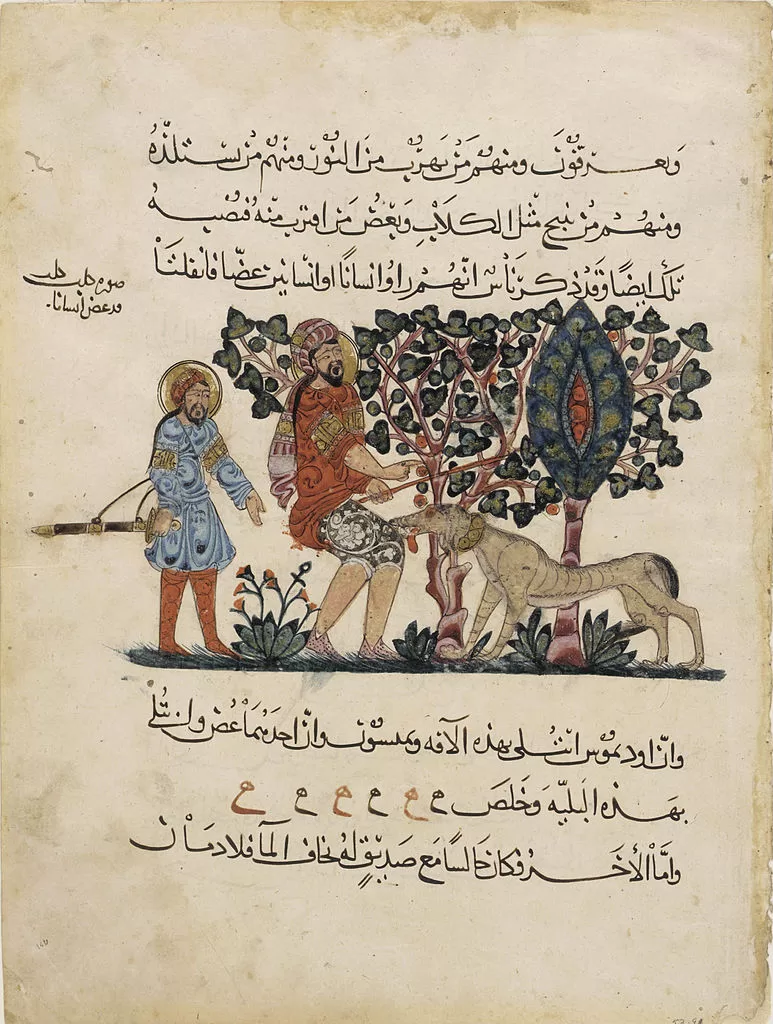 ويعرقون ومنهم من يهرب من النور ومنهم من يستلذه
ومنهم من ينبح مثل الكلاب ويعض من اقترب منه فتصيبه
تلك ايضا وقد ذكر ناس انهم راوا انسانا او انسانين عضا فانفلتا
صورة كلب كلب
قد عض انسانا
وان اوديموس ابتلى بهذه الآفه وان احدهما عض ولن تلى
بهذه البليه وخلص
واما الأخر فكان جالسا مع صديق له يخاف الما فلاد مان